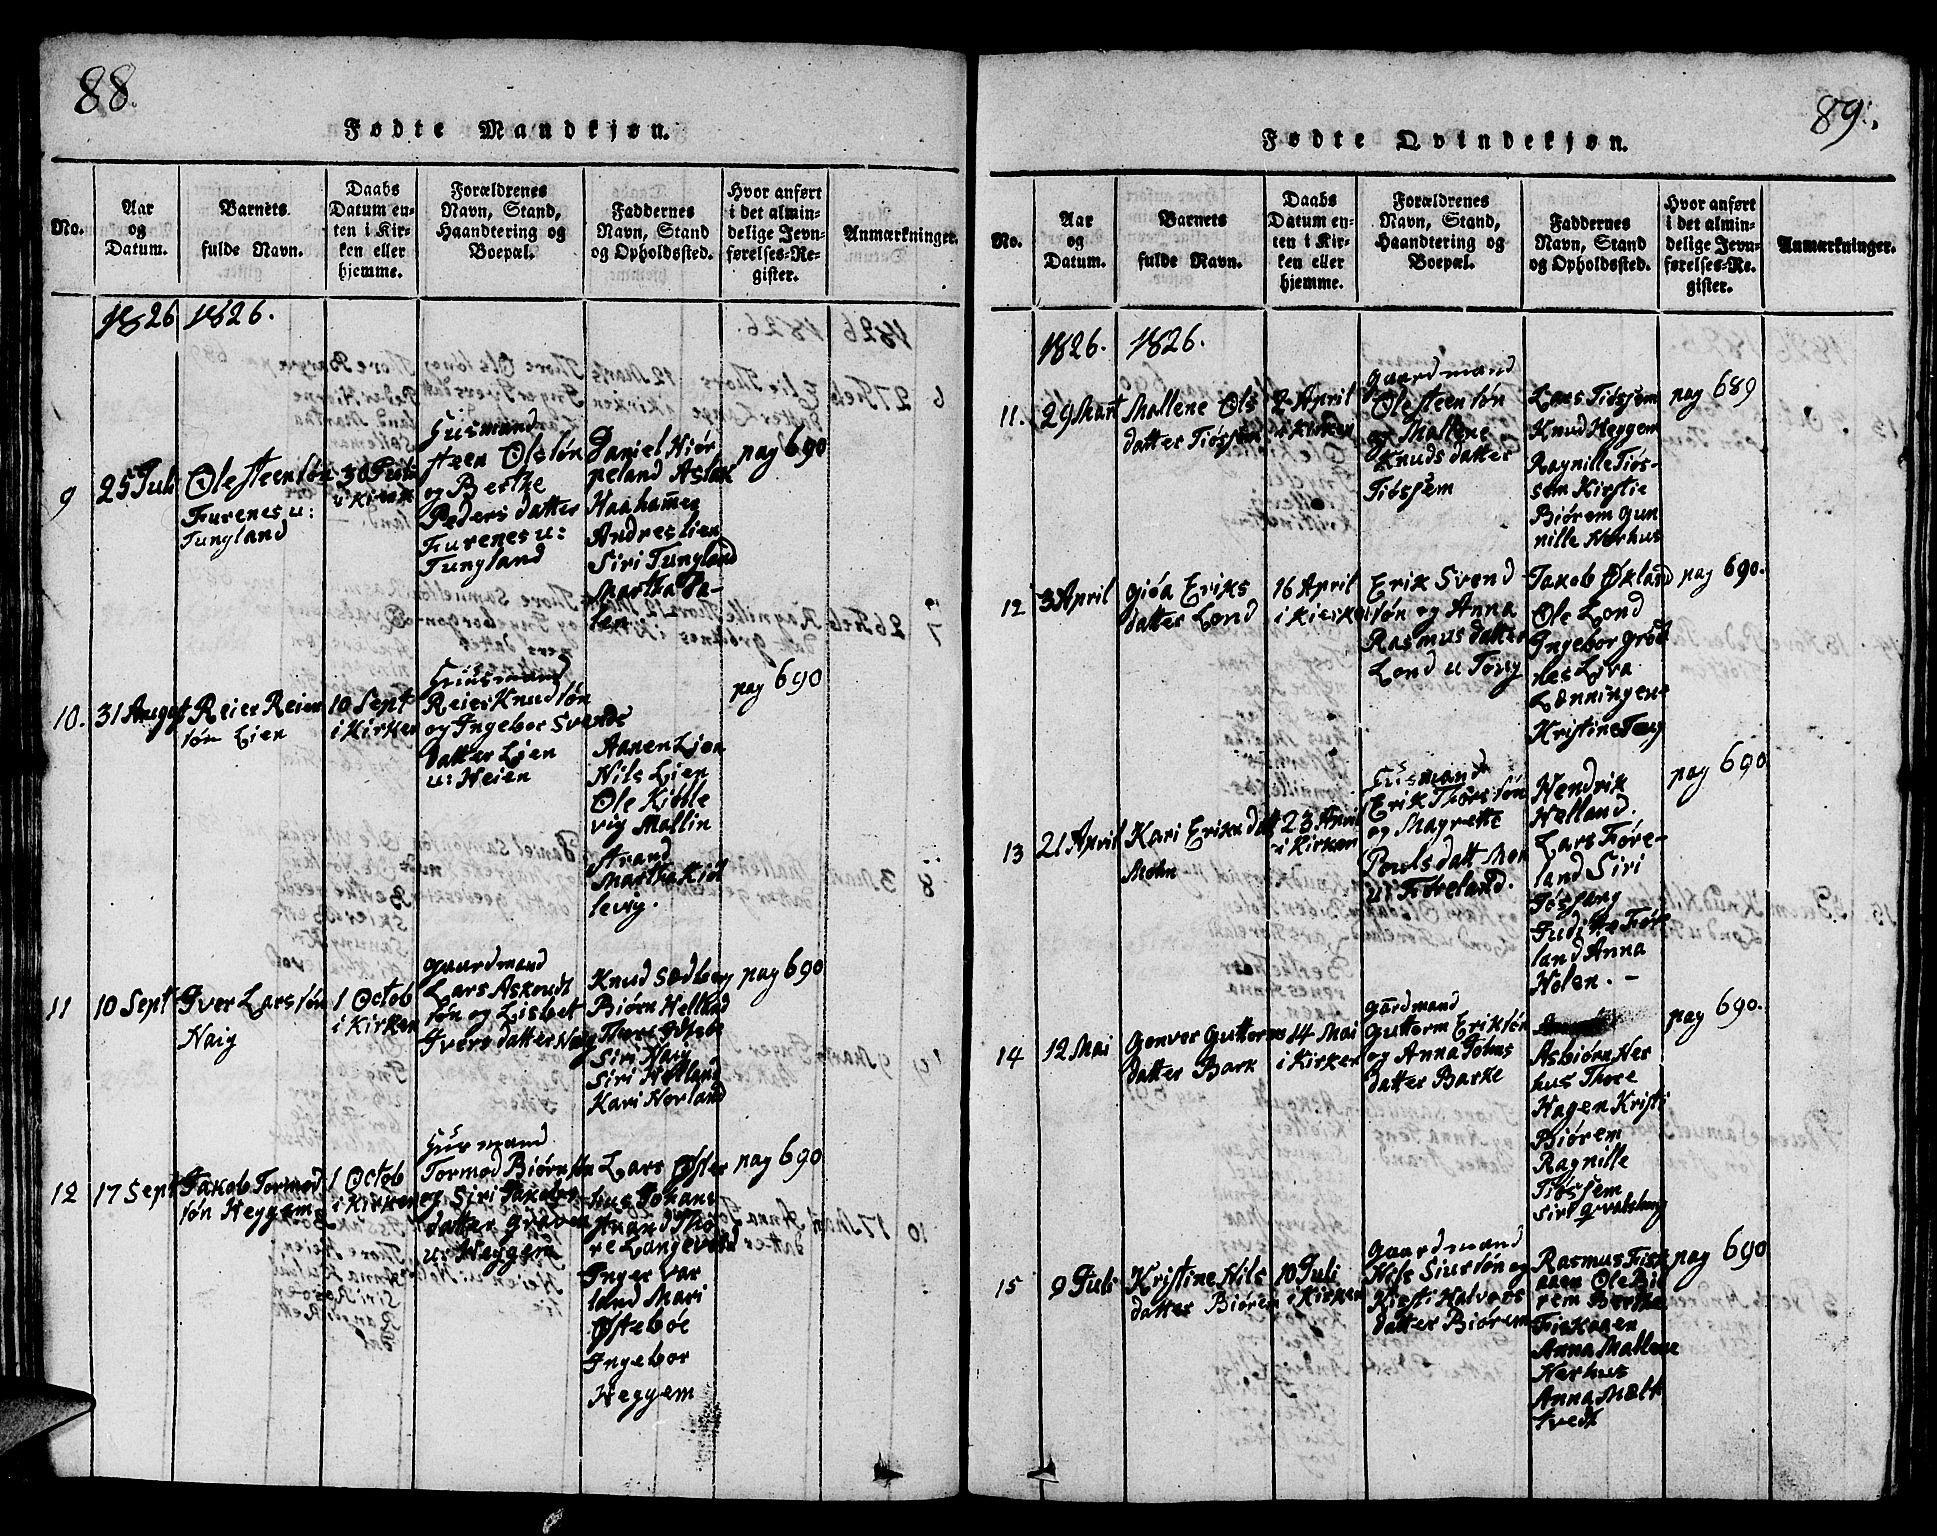 88.
Fødte Mandkjøn.
No.
Aar
og
Datum.
Barnets
fulde Navn.
Daabs
Datum en-
ten i Kir-
ken eller
hjemme.
Forældrenes
Navn, Stand,
Haandtering og
Boepæl.
Faddernes
Navn, Stand
og Opholdssted.
Hvor anført
i det almin-
delige Jevn-
førelses-Re-
gister.
Anmærkninger.
1826 1826.
9
25 Juli
Ole Steensøn
Furenes u:
Tungland
30 Juli
i Kirken
Huusmand
Steen Olssøn
og Berthe
Peders datter
Furenes u:
Tungland
Daniel Hiør
peland Aslak
Haahamer
Andres Lien
Siri Tungland
Martha Da-
len. -
pag 690
10.
31 August
Reier Reier
søn Lien
10 Sept
i Kirken
Huusmand
Reier Knudsøn
og Ingebor Svends
datter Lien
u: Heien
Aanen Lien
Nils Lien
Ole Kidle
vig Mallin
Strand
Martha Kid
levig.
pag 690
11
10 Sept
Iver Larssøn
Haig
1 Octob
i Kirken
Gaardmand
Lars Askoudt
søn og Lisbet
Ivers datter Haig
Knud Sødberg
Biørn Helland
Thore Østebø
Siri Haig
Siri Helland
Kari Norland
pag 690
12
17 Sept
Jakob Tormod
søn Heggem
1 Octob
i Kirken
Huusmand
Tormod Biørnsøn
og Siri Jakobs
datter Graven
u: Heggem
Lars Øster
hus Johans
Strand Tho
re Langeveld
Inger Var
land Mari
Østebøe
Ingebor
Heggem
pag 690
89.
Fødte Qvindekjøn.
No.
Aar
og
Datum.
Barnets
fulde Navn.
Daabs
Datum en-
ten i Kir-
ken eller
hjemme.
Forældrenes
Navn, Stand,
Haandtering og
Boepæl.
Faddernes
Navn, Stand
og Opholdssted.
Hvor anført
i det almin-
delige Jevn-
førelses-Re-
gister.
Anmærkninger.
1826. 1826.
11.
29 Mart
Mallene Ols
datter Tiøssem
2 April
i Kirken
Gaardmand
Ole Steensøn
og Mallene
Knuds datter
Tiøssem
Lars Tiøssem
Knud Heggem
Ragnille Tiøs-
sem Kirstie
Biørem Gun
nille Nerhus
pag 689
12
3 April
Giøa Eriks
datter Lond
16 April
i Kierken
Erik Svend
søn og Anna
Rasmus datter
Lond u Tong
Jakob Økland
Ole Lond
Ingebor Grød
nes Liva
Lønningene
Kristine Tong
pag 690.
13
21 April
Kari Eriks datt
Mohn
23 April
i Kirken
Huusmand
Erik Thorssøn
og Magrette
Povls datt Mon
u: Føreland.
Hendrik
Helland.
Lars Føre-
land Siri
Tøsfang
Judithe Før
land Anna
Holen. -
pag 690
14
12 Mai
Gonvor Guttorms
datter Bark
14 Mai
i Kirken
Gardmand
Guttorm Eriksøn
og Anna Johns
datter Barke
Asbiørn Ner
hus Thore
Hagen Kristi
Biørem
Ragnille
Tiøssem
Siri Qvalvaag
pag 690.
15
9 Juli
Kristine Nils
datter Biørem
10 Juli
i Kirken
Gaardmand
Nils Siursøn og
Kirsti Halvors
datter Biørem
Rasmus Fisk
aaen Ole Biø
rem Berthe
Fiskaaen
Anna Mallene
Nerhus
Anna Mælt
tvedt
pag 690